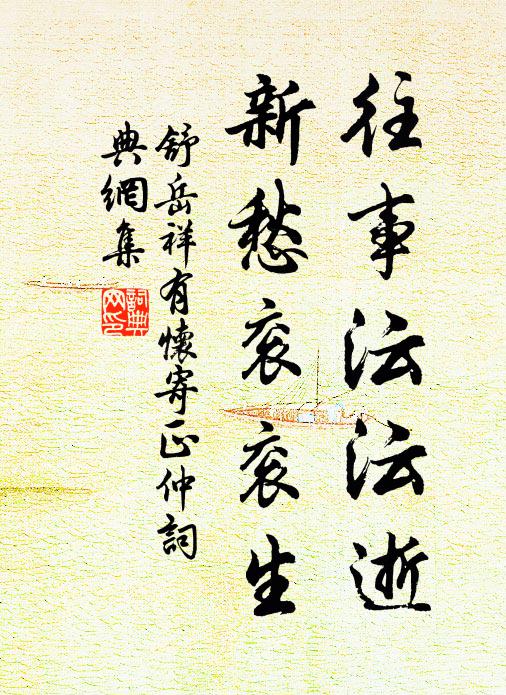 往事沄沄逝
新愁衮衮生
舒岳祥有懷寄正仲詞
典網集
詞典網印